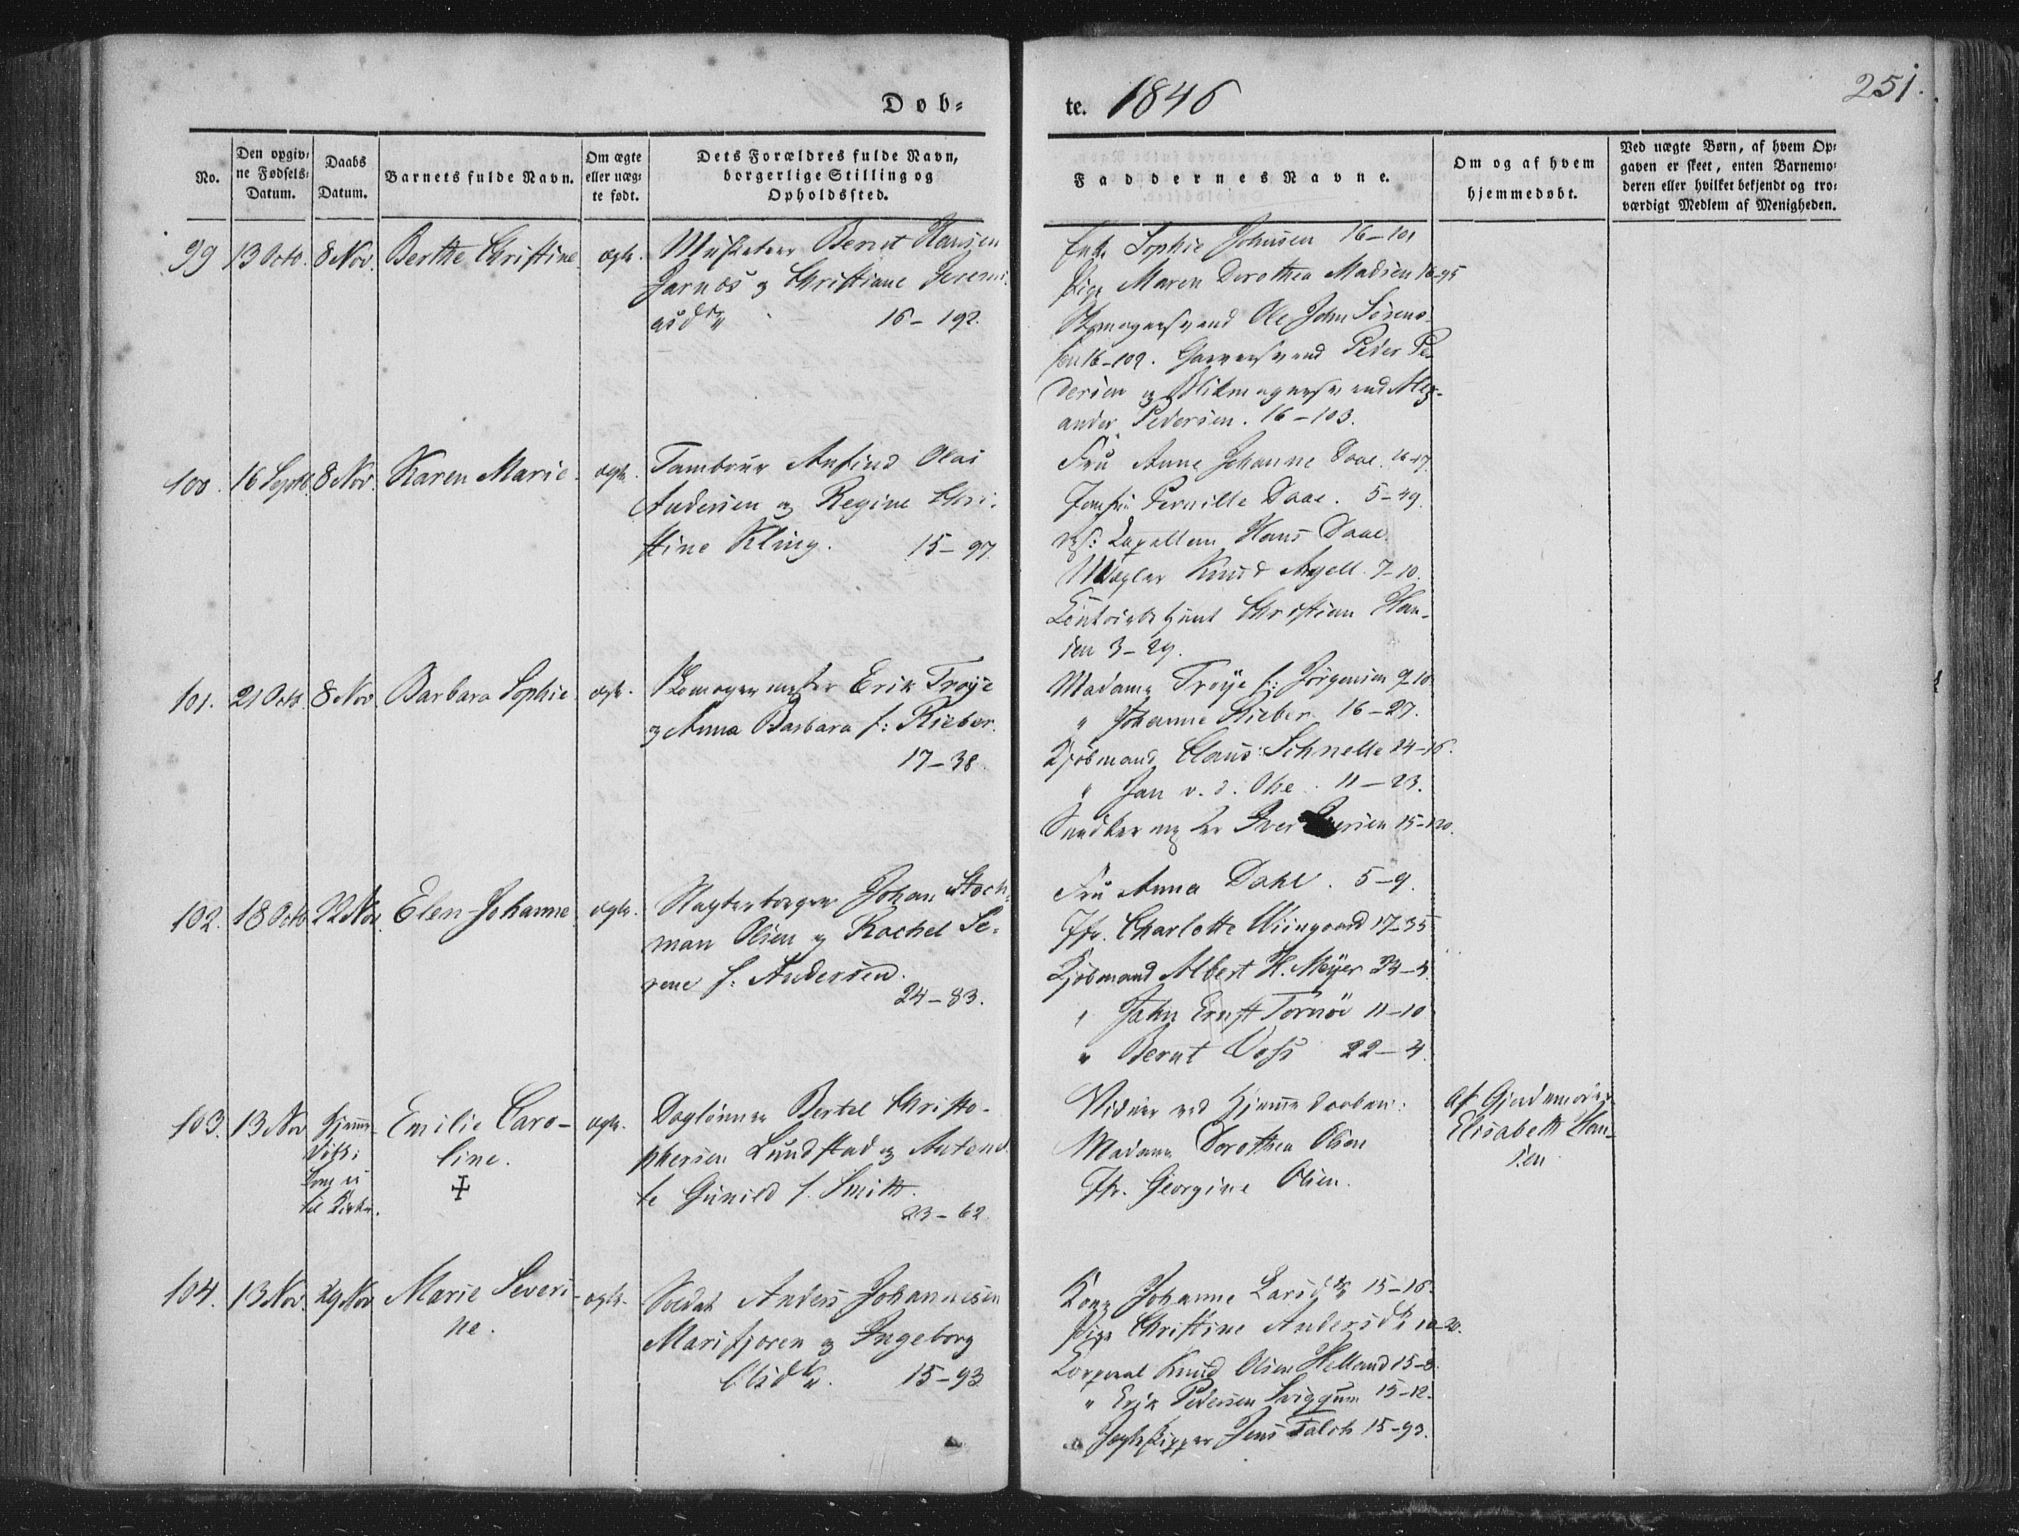 Dob=
te. 1846
251.
No.
Den opgiv=
ne Fødsels=
Datum.
Daabs
Datum.
Barnets fulde Navn.
Om ægte
eller uæg=
te født.
Dets Forældres fulde Navn,
borgerlige Stilling og
Opholdssted.
Faddernes Navne.
Om og af hvem
hjemmedøbt.
Ved uægte Børn, af hvem Op=
gaven er skeet, enten Barnemo=
deren eller hvilket bekjendt og tro=
værdigt Medlem af Menigheden.
99 13 Octo. 8 Nov. Berthe Christine ægte. Musketeer Bernt Hansen
Jarnes og Christiane Jeremi
asdr 16-192.
Enke Sophie Johnsen 16-101
Pige Maren Dorothea Madsen 16-95
Skomagersvend Ole John Sørens=
sen 16-109. Garversvend Peder Pe=
dersen og Blikmagersvend Alex=
ander Pedersen. 16-103.
100. 16 Septb. 8 Nov. Karen Marie. ægte. Tambour Anfind Olai
Andersen og Regine Chri=
stine Kling. 15-97.
Fru Anne Johanne Daae.
Jomfru Pernille Daae. 5-49.
res: Capellan Hans Daae.
Mægler Knud Angell. 7-10.
Contoirbetjent Christian Han=
sen 3-29.
101. 21 Octo. 8 Nov. Barbara Sophie. ægte. Skomagermester Erik Troye
og Anna Barbara f: Rieber.
17-38.
Madame Troye f: Jørgensen 9-10.
" Johanne Rieber. 16-27.
Kjøbmand Claus Schnelle 24-16.
" Jan v. d. Ohe. 11-23.
Snedkermester Iver Iversen 15-120.
102. 18 Octo. 22 Nov. Elen Johanne ægte. Slagterborger Johan Stoch=
man Olsen og Rachel Se=
rene f: Andersen.
24-83.
Fru Anna Dahl. 5-9.
Jfr. Charlotte Wiingaard 17-35
Kjøbmand Albert H. Meyer 23-4.
" John Ernst Tornøe 11-10
" Bernt Voss 22-4.
103. 13 Nov Hjemme-
døbt:
kom ei
til Kirke.
Emilie Caro-
line.
ægte. Daglønner Bertel Christo-
phersen Lundstad og Antonet
te Gunild f. Smith.
23-62.
Vidner ved Hjemmedaaben:
Madame Dorothea Olsen
Jfr. Georgine Olsen.
af Gjordemoder
Elisabeth Han-
sen.
104. 13 Nov. 29 Nov Marie Severi-
ne.
ægte. Soldat Anders Johannesen
Marifjøren og Ingeborg
Olsdr. 15-93
Kone Johanne Larsdr 15-16.
Pige Christine Andersdr 10-20.
Corporal Knud Olsen Helland 15-8.
" Erik Pedersen Sviggum 15-12.
Jagtskipper Jens Falch 15-93.